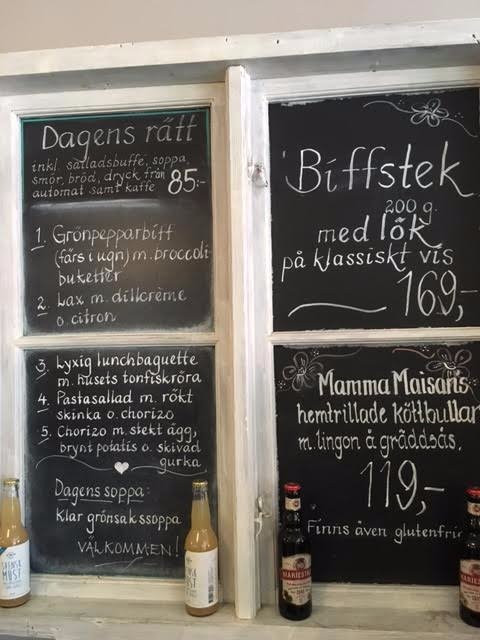 Dagens rätt
inkl. salladsbuffé, soppa,
smör, bröd, dryck från
automat samt kaffe 85:-
1. Grönpepparbiff
(färs i ugn) m. broccoli-
buketter
2. Lax m. dillcrème
o. citron
3. Lyxig lunchbaguette
m. husets tonfiskröra
4. Pastasallad m. rökt
skinka o. chorizo
5. Chorizo m. stekt ägg,
brynt potatis o. skivad
gurka
Dagens soppa:
Klar grönsakssoppa
VÄLKOMMEN!
Biffstek
200 g.
med lök
på klassiskt vis
169,-
Mamma Maisans
hemtrillade köttbullar
m. lingon å gräddsås.
119,-
Finns även glutenfri
SVENSK
MUST
MUST
MARIESTADS